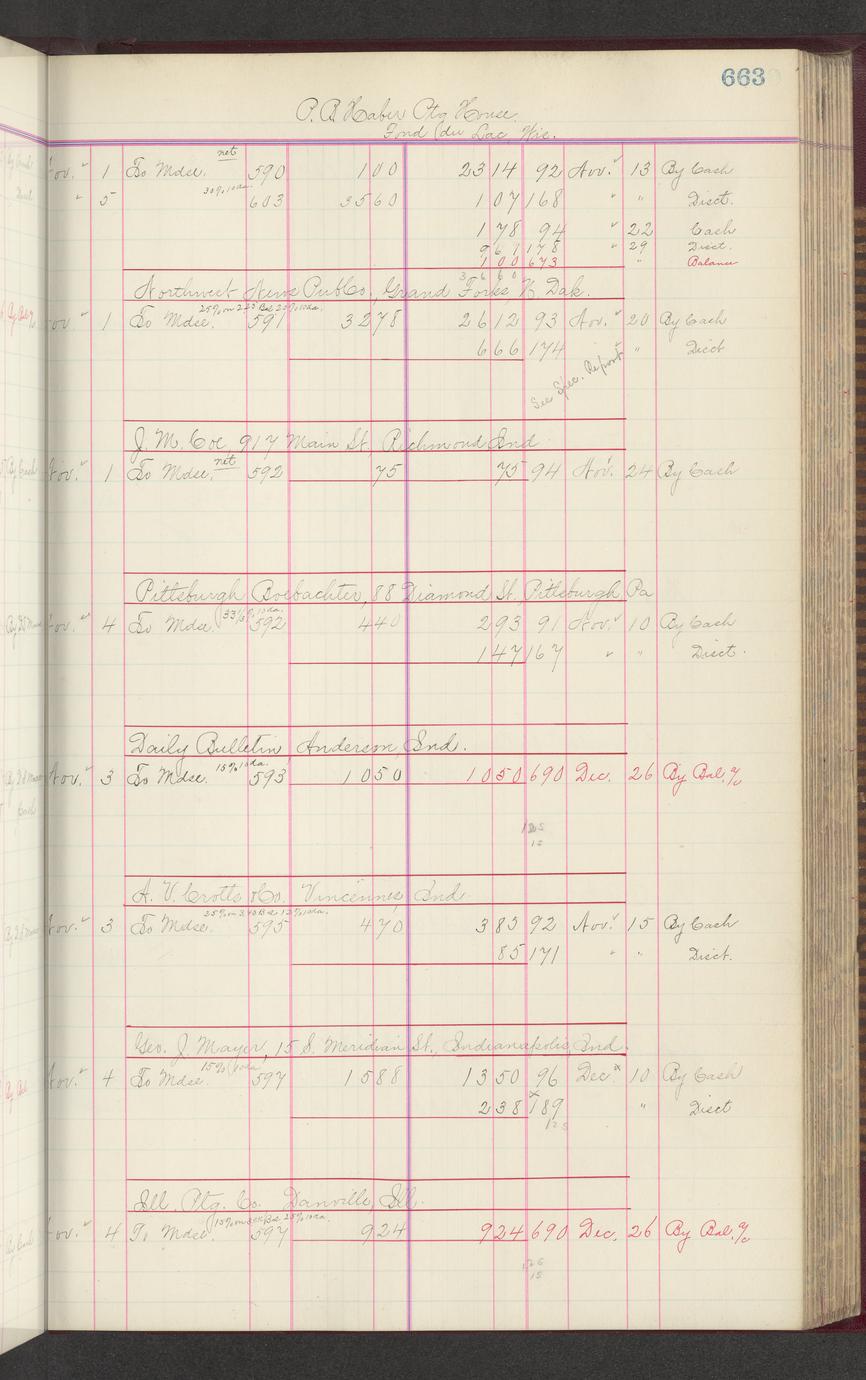 663
P. B. Haber Ptg House,
Fond du Lac, Wis.
Nov. 1 To Mdse. net 590 1 00 23 14 92 Nov. 13 By Cash
" 5 30% 10 da. 603 35 60 1 07 168 " " Disct.
1 78 94 " 22 Cash
9 61 178 " 29 Disct.
1 00 673 " Balance
36 60
Northwest News Pub Co., Grand Forks, N. Dak.
25% on 2 25 Bal 25% 10 da.
Nov. 1 To Mdse. 591 32 78 26 12 93 Nov. 20 By Cash
6 66 174 " Disct
See Spec. Report
J. M. Coe, 917 Main St., Richmond Ind
Nov. 1 To Mdse. net 592 75 75 94 Nov. 24 By Cash
Pittsburgh Beobachter, 88 Diamond St., Pittsburgh, Pa
33 1/3% 10 da.
Nov. 4 To Mdse. 592 4 40 2 93 91 Nov. 10 By Cash
1 47 167 " " Disct.
Daily Bulletin Anderson, Ind.
15% 10 da.
Nov. 3 To Mdse. 593 10 50 10 50 690 Dec. 26 By Bal. %
15
A. V. Crotts & Co. Vincennes, Ind.
Nov. 3 To Mdse. 595 4 70 3 85 92 Nov. 15 By Cash
85 171 " " Disct.
Geo. J. Mayer, 15 S. Meridian St., Indianapolis, Ind.
15% 10 da.
Nov. 4 To Mdse. 597 15 88 13 50 96 Dec. 10 By Cash
2 38 189 " Disct
125
Ill. Ptg. Co. Danville, Ill.
Nov. 4 To Mdse. 597 9 24 9 24 690 Dec. 26 By Bal. %
15